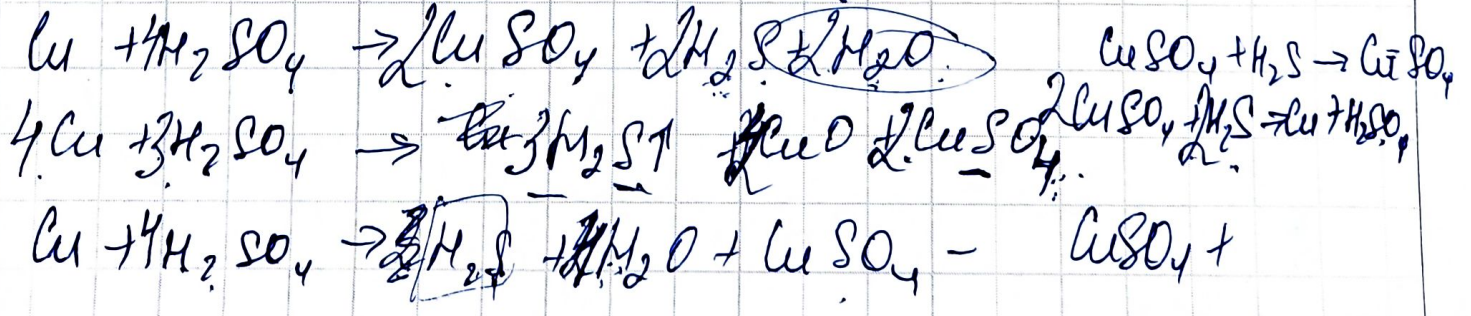 Cu + 4H₂SO₄ → 2CuSO₄ + 2H₂S + 2H₂O CuSO₄ + H₂S → Cu SO₄
4Cu + 3H₂SO₄ → 3H₂S↑ CuO + 2CuSO₄ 2CuSO₄ + 2H₂S → Cu + H₂SO₄
Cu + 4H₂SO₄ → H₂S + H₂O + CuSO₄ – CuSO₄ +